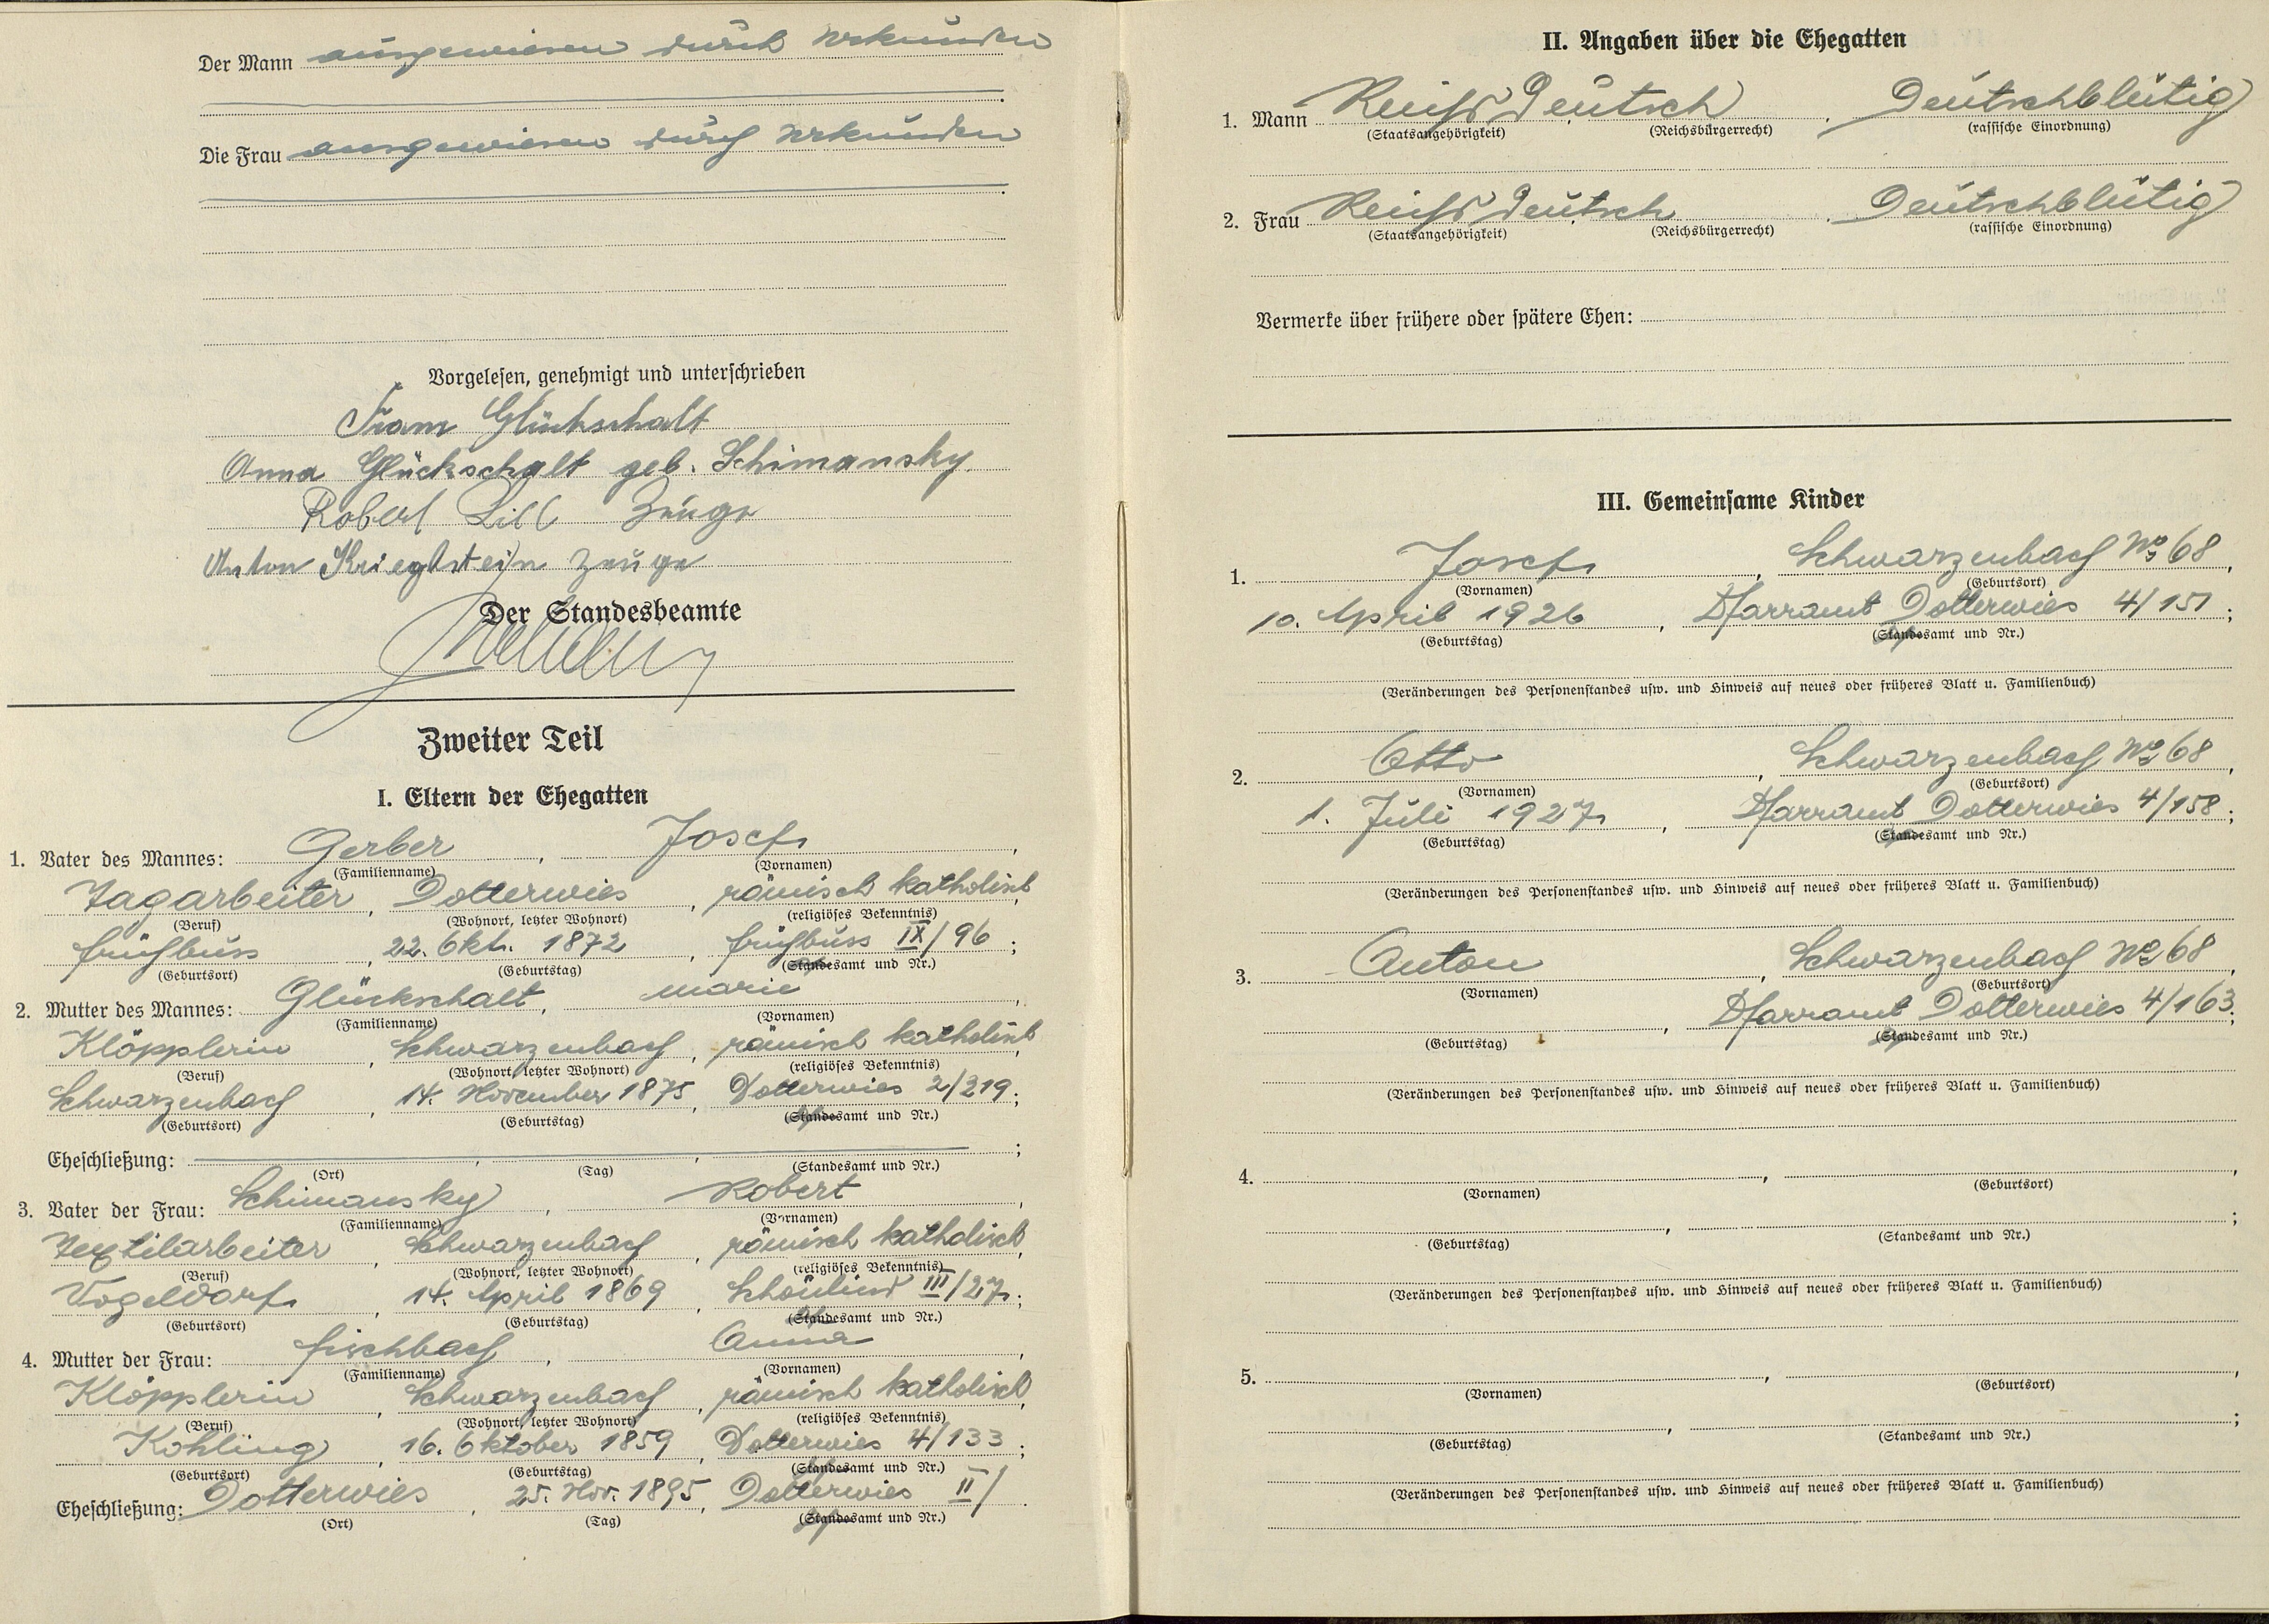 Der Mann ausgewiesen durch Urkunden
Die Frau ausgewiesen durch Urkunden
Vorgelesen, genehmigt und unterschrieben
Glückschalt
Anna Glückschalt geb. Schimansky.
Robert Lill Zeuge
Anton Krieglstein Zeuge
Der Standesbeamte
Zweiter Teil
I. Eltern der Ehegatten
1. Vater des Mannes: Gerber, Josef,
(Familienname) (Vornamen)
Tagarbeiter, Dotterwies, römisch katholisch,
(Beruf) (Wohnort, letzter Wohnort) (religiöses Bekenntnis)
Frühbuss, 22. Okt. 1872, Frühbuss IX/96;
(Geburtsort) (Geburtstag) (Standesamt und Nr.)
2. Mutter des Mannes: Glückschalt, Marie,
(Familienname) (Vornamen)
Klöpplerin, Schwarzenbach, römisch katholisch,
(Beruf) (Wohnort, letzter Wohnort) (religiöses Bekenntnis)
Schwarzenbach, 14. November 1875, Dotterwies 2/219;
(Geburtsort) (Geburtstag) (Standesamt und Nr.)
Eheschließung: , , ;
(Ort) (Tag) (Standesamt und Nr.)
3. Vater der Frau: Schimansky, Robert,
(Familienname) (Vornamen)
Textilarbeiter, Schwarzenbach, römisch katholisch,
(Beruf) (Wohnort, letzter Wohnort) (religiöses Bekenntnis)
Vogeldorf, 14. April 1869, Schönlind III/27;
(Geburtsort) (Geburtstag) (Standesamt und Nr.)
4. Mutter der Frau: Fischbach, Anna,
(Familienname) (Vornamen)
Klöpplerin, Schwarzenbach, römisch katholisch,
(Beruf) (Wohnort, letzter Wohnort) (religiöses Bekenntnis)
Kohling, 16. Oktober 1859, Dotterwies 4/133;
(Geburtsort) (Geburtstag) (Standesamt und Nr.)
Eheschließung: Dotterwies, 25. Nov. 1895, Dotterwies II/.
(Ort) (Tag) (Standesamt und Nr.)
II. Angaben über die Ehegatten
1. Mann Reichsdeutsch, Deutschblütig
(Staatsangehörigkeit) (Reichsbürgerrecht) (rassische Einordnung)
2. Frau Reichsdeutsch, Deutschblütig
(Staatsangehörigkeit) (Reichsbürgerrecht) (rassische Einordnung)
Vermerke über frühere oder spätere Ehen:
III. Gemeinsame Kinder
1. Josef, Schwarzenbach No 68,
(Vornamen) (Geburtsort)
10. April 1926, Pfarramt Dotterwies 4/151;
(Geburtstag) (Standesamt und Nr.)
(Veränderungen des Personenstandes usw. und Hinweis auf neues oder früheres Blatt u. Familienbuch)
2. Otto, Schwarzenbach No 68,
(Vornamen) (Geburtsort)
1. Juli 1927, Pfarramt Dotterwies 4/158;
(Geburtstag) (Standesamt und Nr.)
(Veränderungen des Personenstandes usw. und Hinweis auf neues oder früheres Blatt u. Familienbuch)
3. Anton, Schwarzenbach No 68,
(Vornamen) (Geburtsort)
, Pfarramt Dotterwies 4/163;
(Geburtstag) (Standesamt und Nr.)
(Veränderungen des Personenstandes usw. und Hinweis auf neues oder früheres Blatt u. Familienbuch)
4. , ,
(Vornamen) (Geburtsort)
, ;
(Geburtstag) (Standesamt und Nr.)
(Veränderungen des Personenstandes usw. und Hinweis auf neues oder früheres Blatt u. Familienbuch)
5. , ,
(Vornamen) (Geburtsort)
, ;
(Geburtstag) (Standesamt und Nr.)
(Veränderungen des Personenstandes usw. und Hinweis auf neues oder früheres Blatt u. Familienbuch)